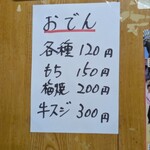 おでん
各種 120円
もち 150円
梅焼 200円
牛スジ 300円